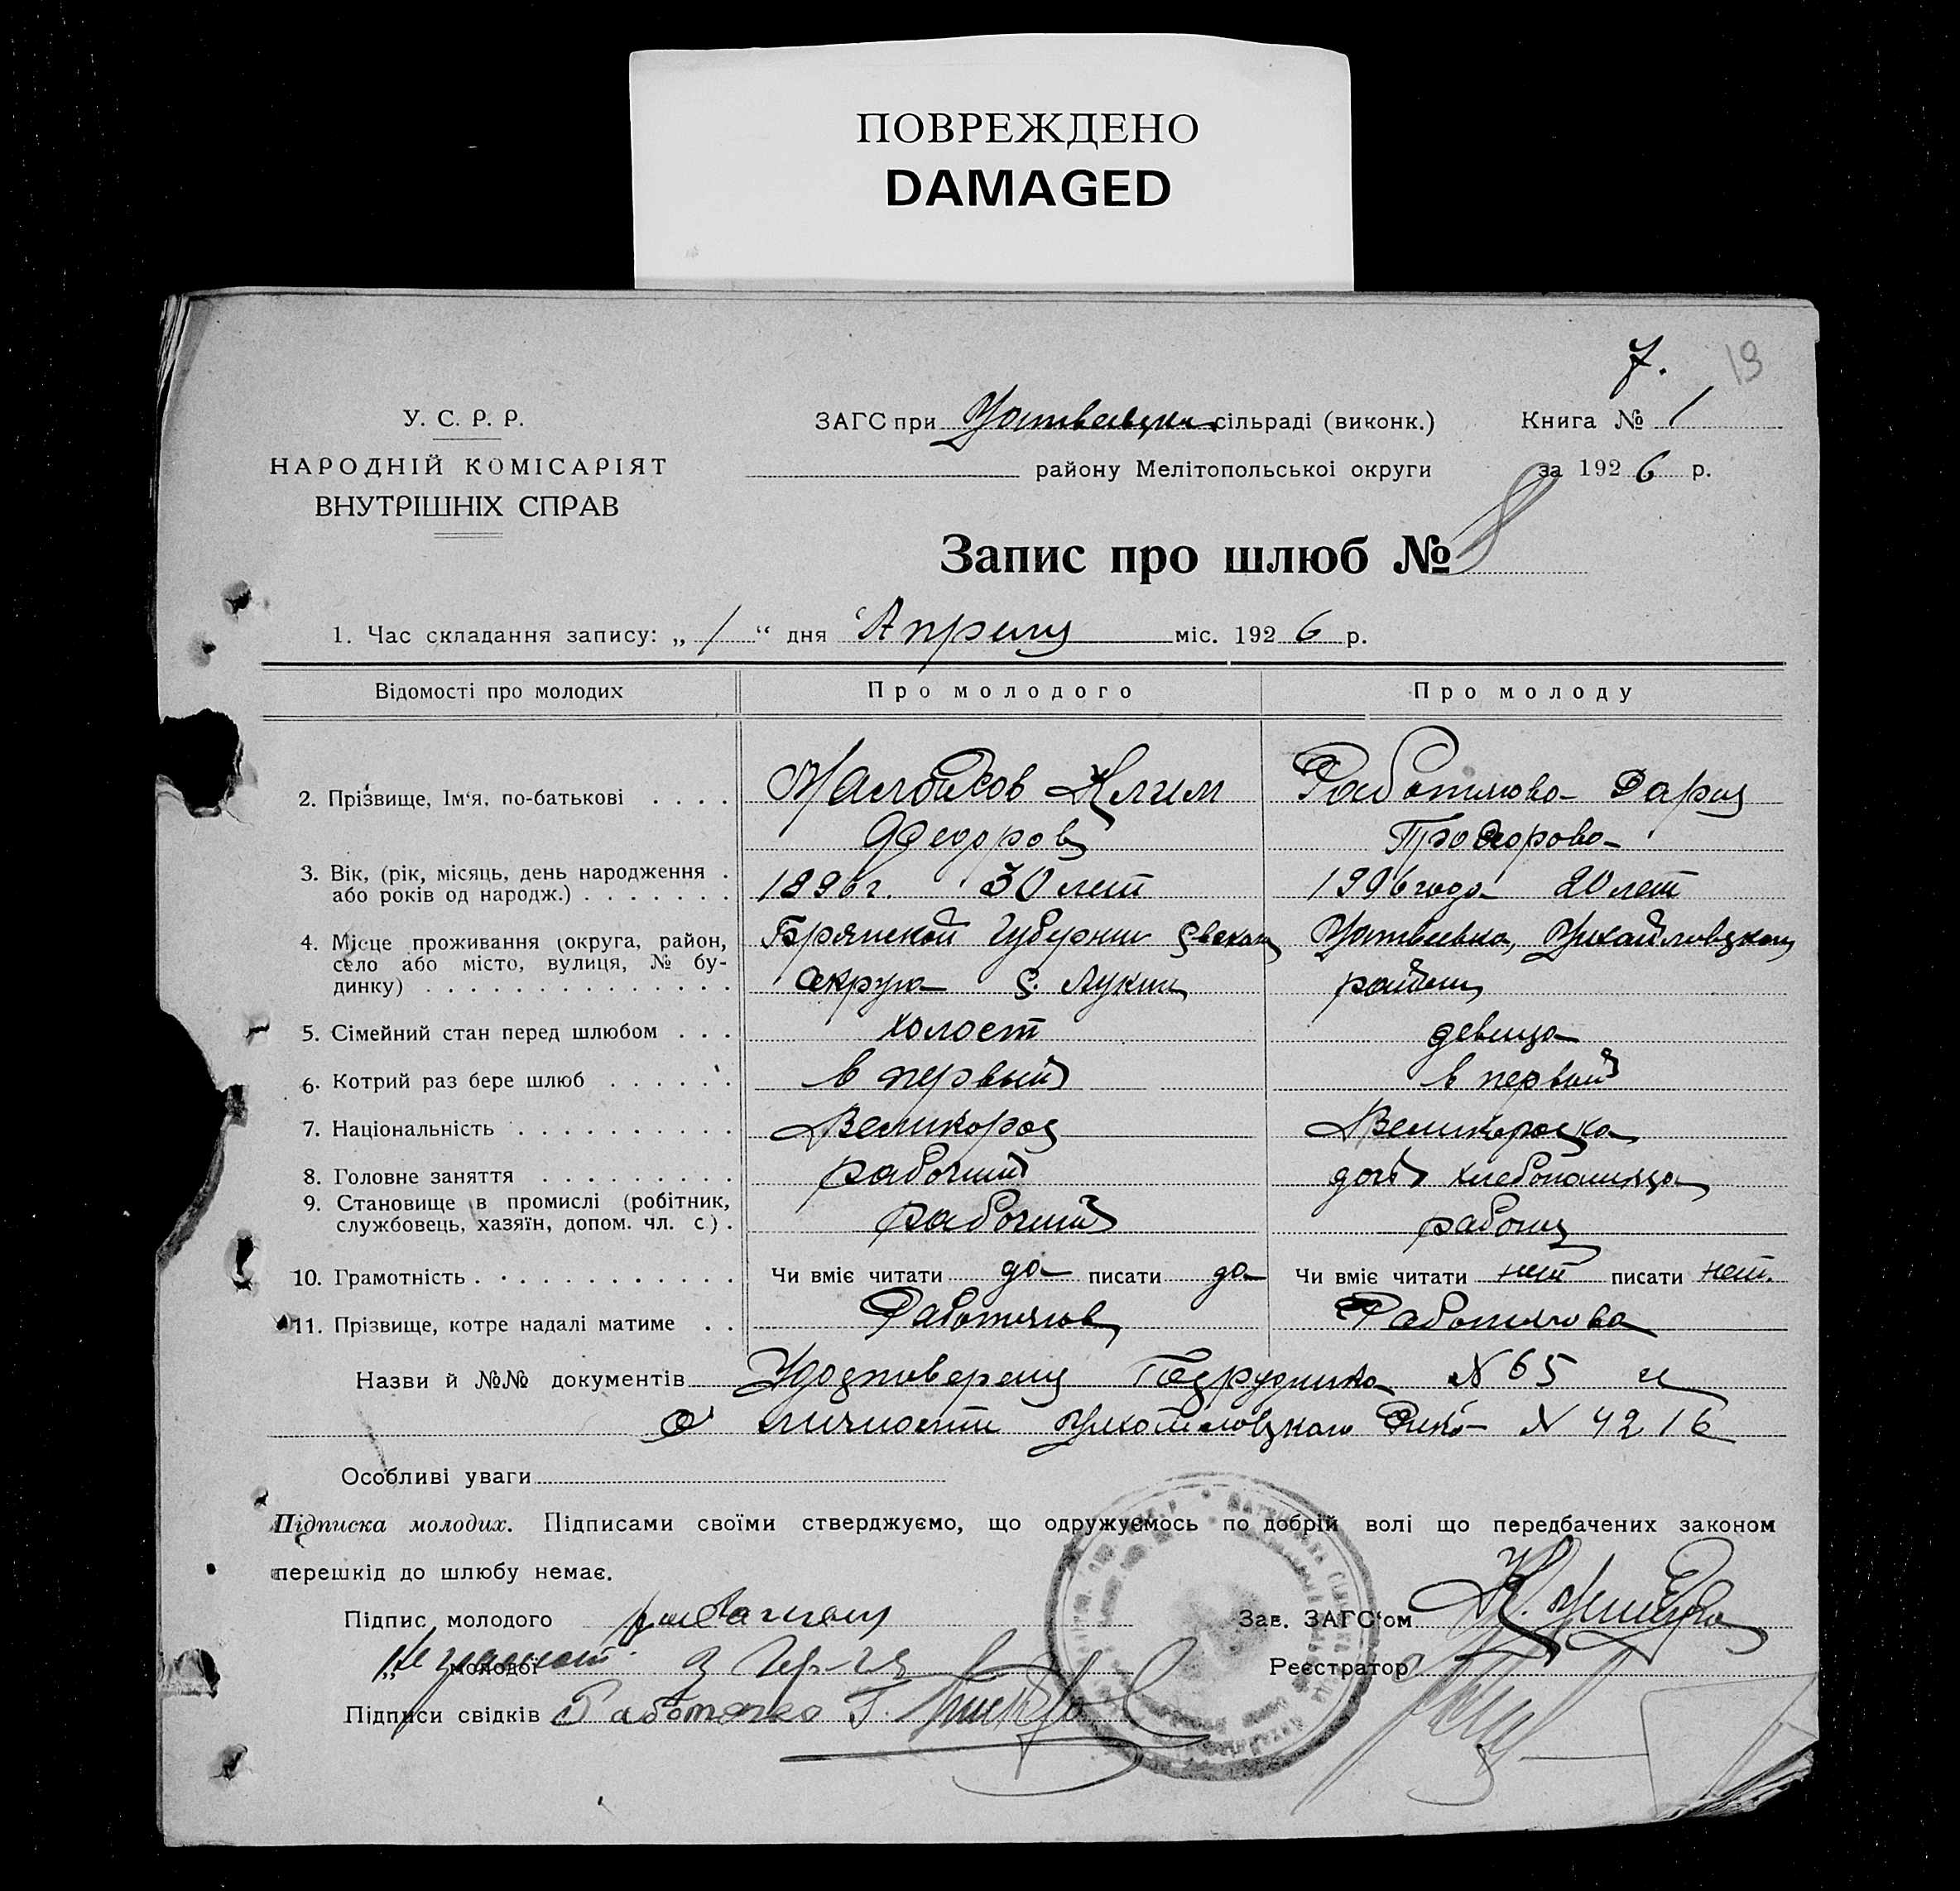 ПОВРЕЖДЕНО
DAMAGED
7. 19
У. С. Р. Р.
НАРОДНІЙ КОМІСАРІЯТ
ВНУТРІШНІХ СПРАВ
ЗАГС при сільраді (виконк.) Книга № 1
району Мелітопольської округи за 1926 р.
Запис про шлюб № 8
1. Час складання запису: „ 1 “ дня Апреля міс. 1926 р.
Відомості про молодих Про молодого Про молоду
2. Прізвище, Ім'я, по-батькові . . . . Клим Работягова Дария
Федоров
3. Вік, (рік, місяць, день народження . або років од народж.) . . . . . . . 1896 г. 30 лет 1906 года 20 лет
4. Місце проживання (округа, район, Брянской Губернии Матвеевка, Михайловского
село або місто, вулиця, № бу-
динку) . . . . . . . . . . . . . . округа с. района
5. Сімейний стан перед шлюбом . . . холост девица
6. Котрий раз бере шлюб . . . . . . в первый в первый
7. Національність . . . . . . . . . . Великорос Великороска
8. Головне заняття . . . . . . . . . рабочий дочь хлебопашца
9. Становище в промислі (робітник,
службовець, хазяїн, допом. чл. с.) . рабочий
10. Грамотність . . . . . . . . . . . . Чи вміє читати да писати да Чи вміє читати нет писати нет.
11. Прізвище, котре надалі матиме . . Работягов Работягова
Назви й №№ документів N 65 и
о личности Михайловского N 4216
Особливі уваги
Підписка молодих. Підписами своїми стверджуємо, що одружуємось по добрій волі що передбачених законом
перешкід до шлюбу немає.
Підпис молодого Зав. ЗАГС'ом
„ молодої Реєстратор
Підписи свідків